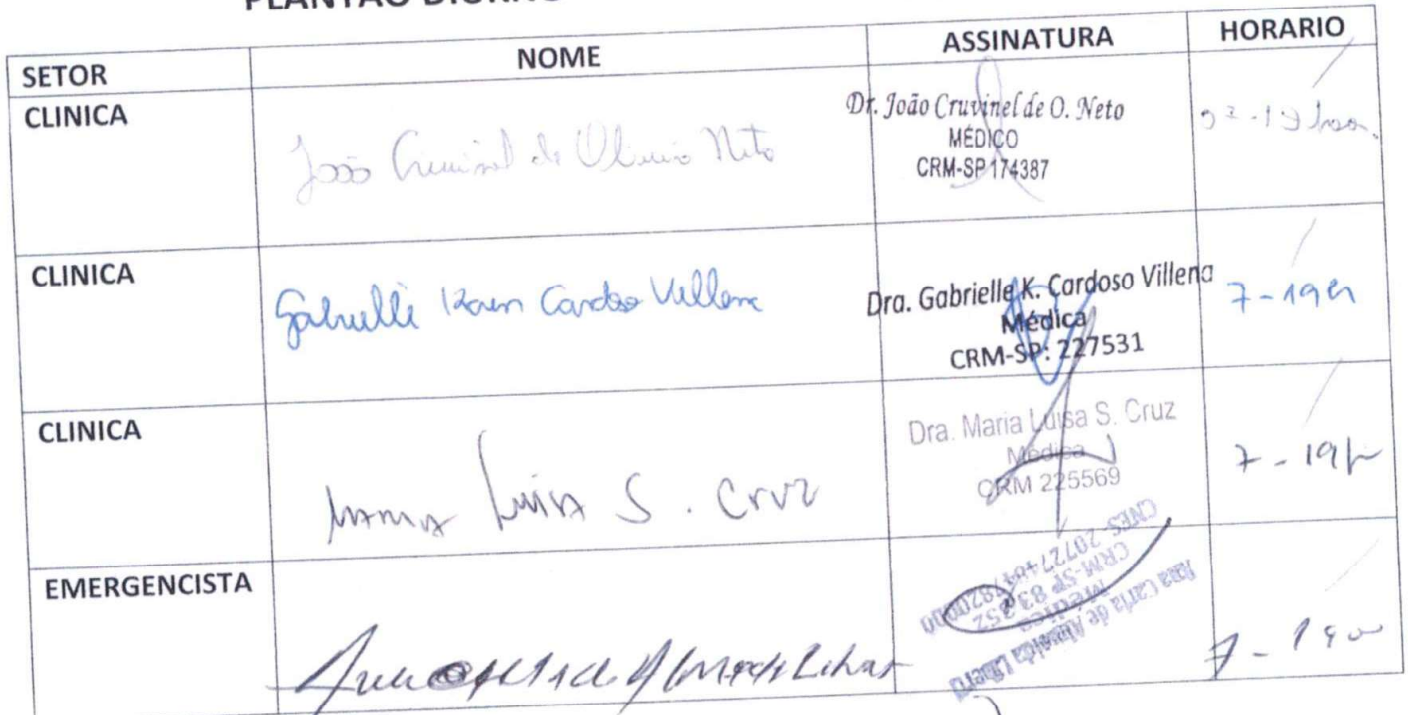 PLANTÃO DIURNO
SETOR NOME ASSINATURA HORARIO
CLINICA João Cruvinel de Oliveira Neto Dr. João Cruvinel de O. Neto
MÉDICO
CRM-SP 174387
CLINICA Gabrielle Karen Cardoso Villena Dra. Gabrielle K. Cardoso Villena 7-19h
Médica
CRM-SP: 227531
CLINICA Maria Luisa S. Cruz Dra. Maria Luisa S. Cruz 7-19h
Médica
CRM 225569
EMERGENCISTA Ana Carla de Almeida
Médica
CRM-SP 83352
CNES